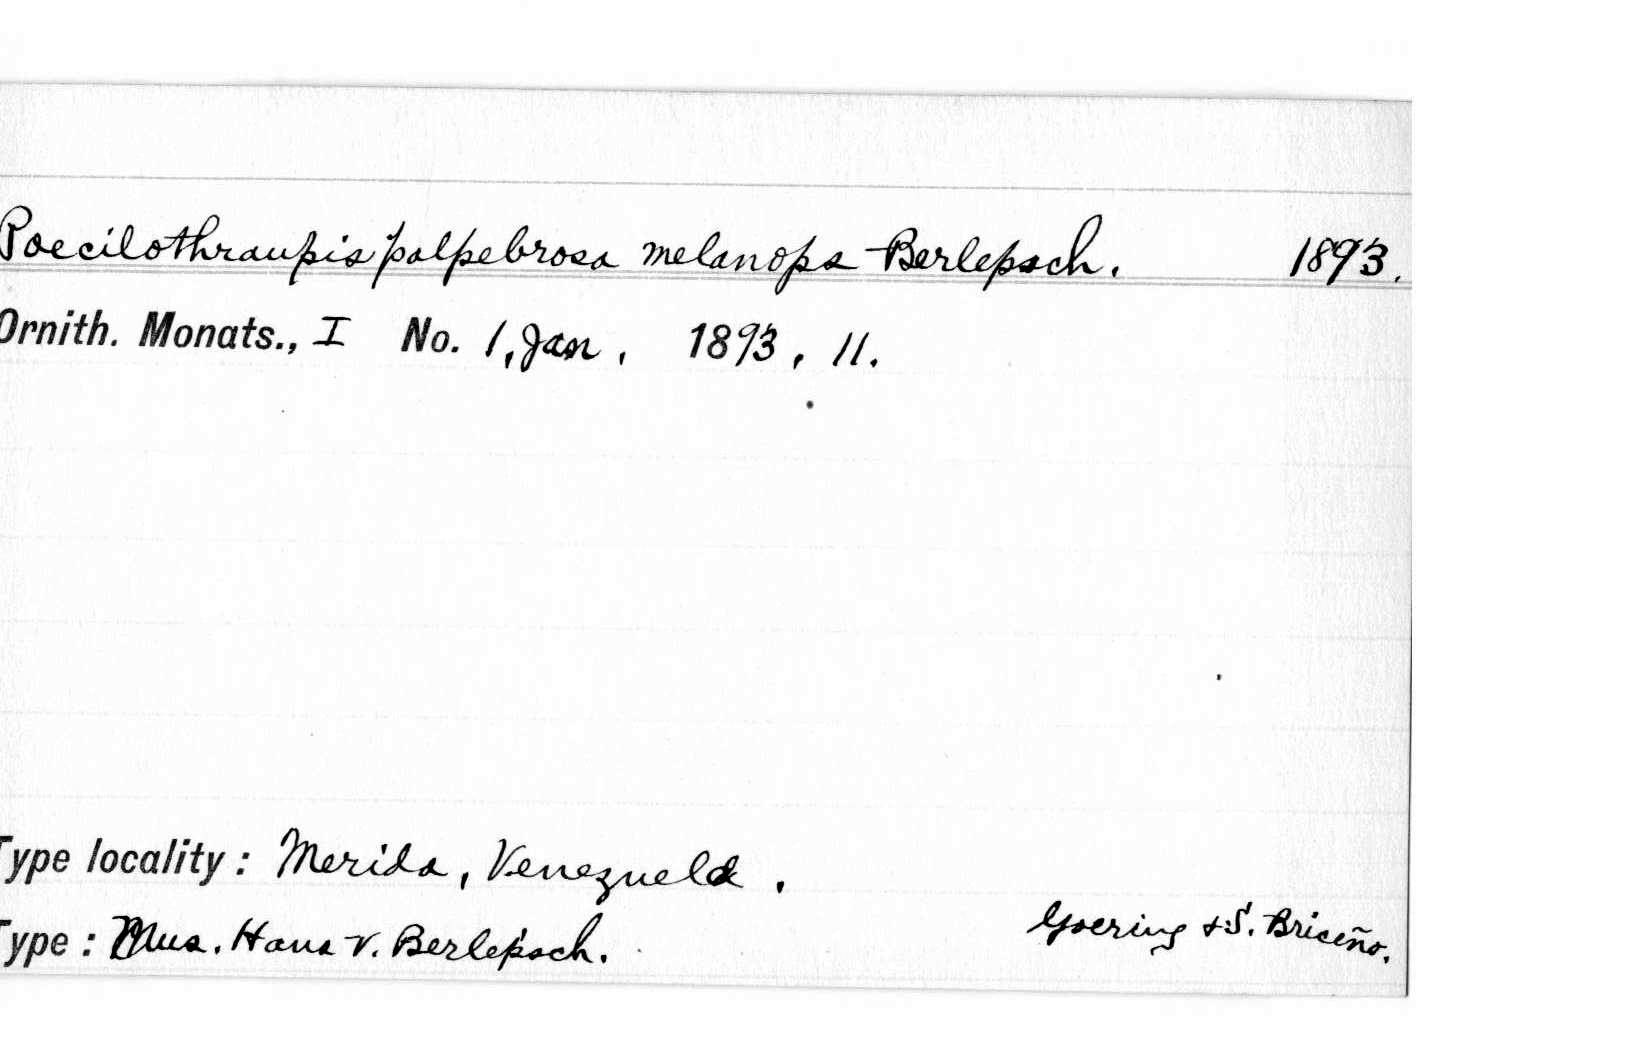 Poecilothraupis palpebrosa melanops Berlepsch. 1893.
Ornith. Monats., I No. 1, Jan. 1893, 11.
Type locality: Merida, Venezuela.
Goering & S. Briceño.
Type: Mus. Hans v. Berlepsch.